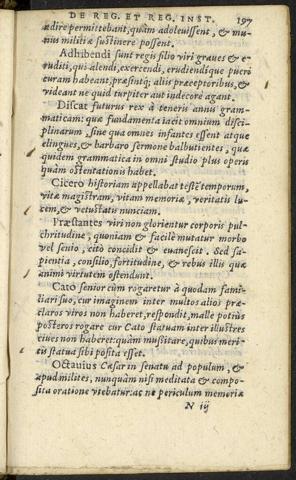 DE REG. ET REG. INST. 197
ædire permittebant, quàm adoleuissent, & mu-
nus militiæ sustinere possent.
Adhibendi sunt regis filio viri graues & e-
ruditi, qui alendi, exercendi, erudiendique pueri
curam habeant, præsintq; aliis præceptoribus, &
videant ne quid turpiter aut indecore agant.
Discat futurus rex à teneris annis gram-
maticam: quæ fundamenta iacit omnium disci-
plinarum, sine qua omnes infantes essent atque
elingues, & barbaro sermone balbutientes, quæ
quidem grammatica in omni studio plus operis
quàm ostentationis habet.
Cicero historiam appellabat testē temporum,
vitæ magistram, vitam memoriæ, veritatis lu-
cem, & vetustatis nunciam.
Præstantes viri non glorientur corporis pul-
chritudine, quoniam & facilè mutatur morbo
vel senio, citò concidit & euanescit. Sed sa-
pientia, consilio, fortitudine, & rebus illis quæ
animi virtutem ostendunt.
Cato senior cùm rogaretur à quodam fami-
liari suo, cur imaginem inter multos alios præ-
claros viros non haberet, respondit, malle potiùs
posteros rogare cur Cato statuam inter illustres
ciues non haberet: quàm mussitare, quibus meri-
tis statua sibi posita esset.
Octauius Cæsar in senatu ad populum, &
apud milites, nunquàm nisi meditata & compo-
sita oratione vtebatur: ac ne periculum memoriæ
N iij